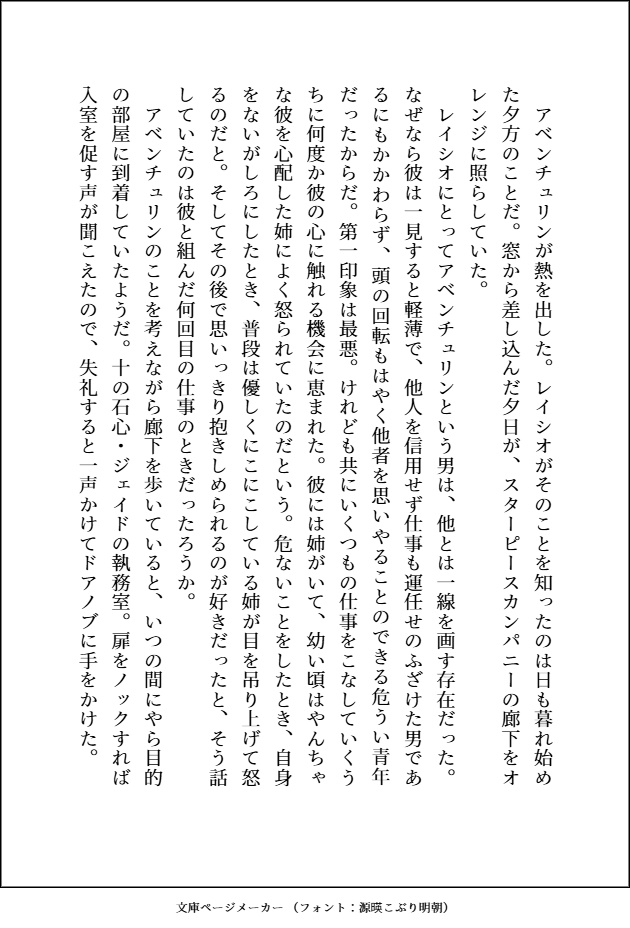 アベンチュリンが熱を出した。レイシオがそのことを知ったのは日も暮れ始め
た夕方のことだ。窓から差し込んだ夕日が、スターピースカンパニーの廊下をオ
レンジに照らしていた。
レイシオにとってアベンチュリンという男は、他とは一線を画す存在だった。
なぜなら彼は一見すると軽薄で、他人を信用せず仕事も運任せのふざけた男であ
るにもかかわらず、頭の回転もはやく他者を思いやることのできる危うい青年
だったからだ。第一印象は最悪。けれども共にいくつもの仕事をこなしていくう
ちに何度か彼の心に触れる機会に恵まれた。彼には姉がいて、幼い頃はやんちゃ
な彼を心配した姉によく怒られていたのだという。危ないことをしたとき、自身
をないがしろにしたとき、普段は優しくにこにこしている姉が目を吊り上げて怒
るのだと。そしてその後で思いっきり抱きしめられるのが好きだったと、そう話
していたのは彼と組んだ何回目の仕事のときだったろうか。
アベンチュリンのことを考えながら廊下を歩いていると、いつの間にやら目的
の部屋に到着していたようだ。十の石心・ジェイドの執務室。扉をノックすれば
入室を促す声が聞こえたので、失礼すると一声かけてドアノブに手をかけた。
文庫ページメーカー（フォント：源暎こぶり明朝）